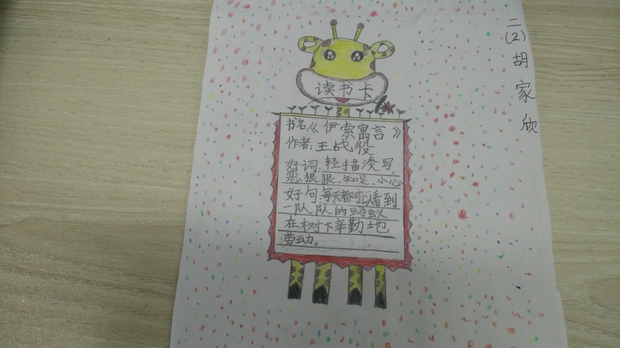 二(2)胡家欣
读书卡
书名《伊索寓言》
作者:王战役
好词:轻描淡写
恶狠狠、知足、小心
好句:每天都可以看到
一队队的蚂蚁
在树下辛勤地
劳动。